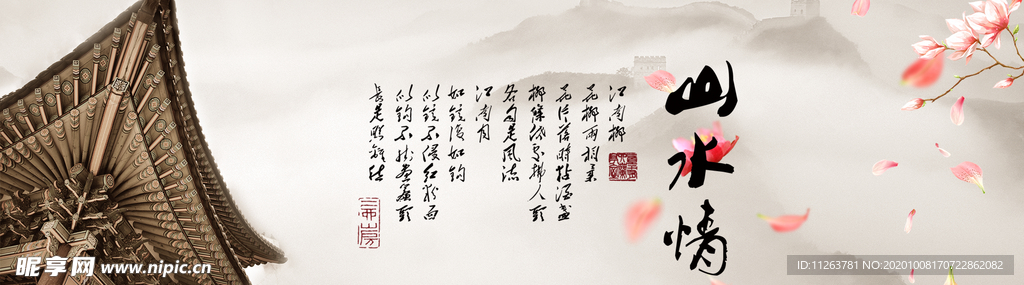 山水情
江南柳
花柳两相柔
花片落时黏酒盏
柳条低处拂人头
各自是风流
江南月
如镜复如钩
似镜不侵红粉面
似钩不挂画帘头
长是照离愁
昵享网 www.nipic.cn
ID:11263781 NO:20201008170722862082